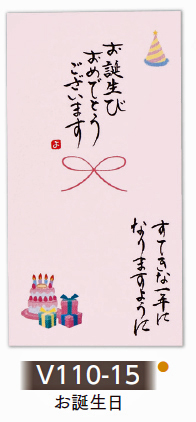 お誕生び
おめでとう
ございます
すてきな一年に
なりますように
V110-15
お誕生日